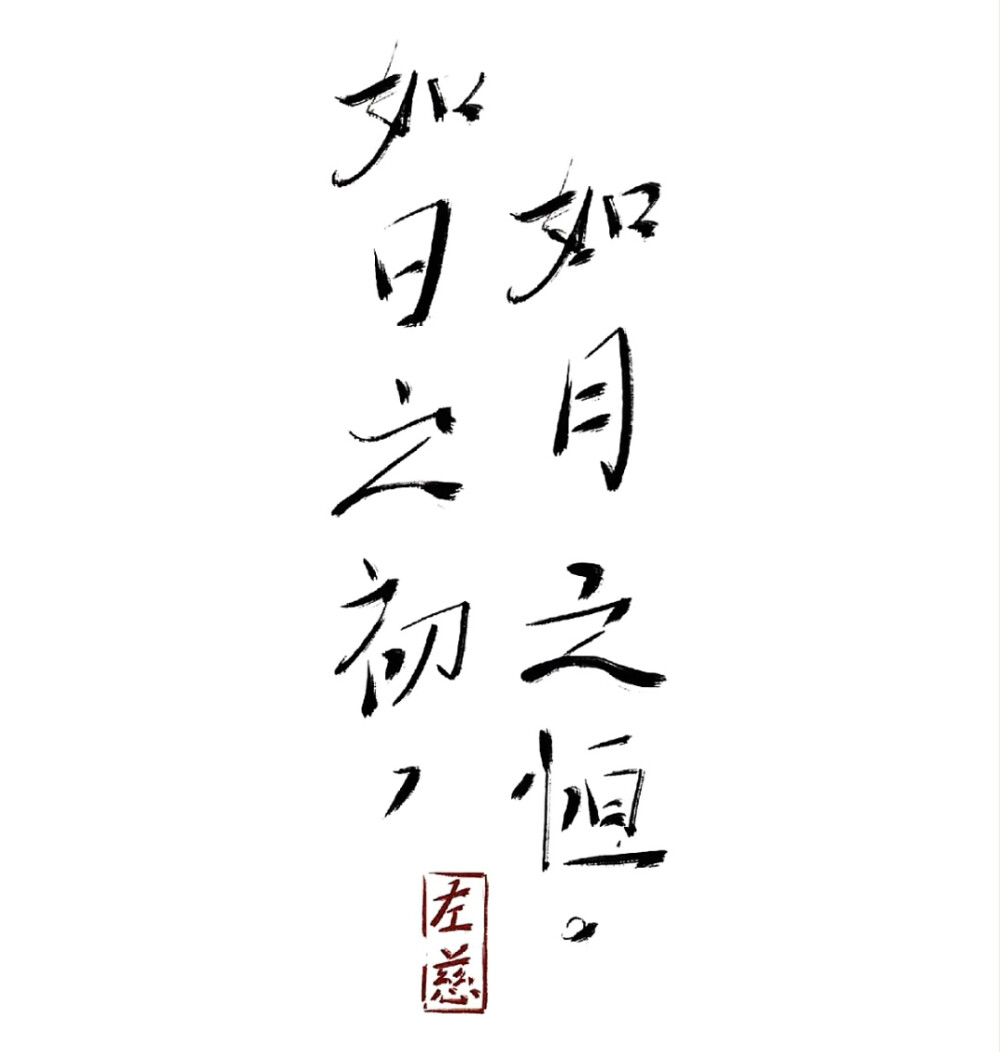 如日之初，
如月之恒。
左慈